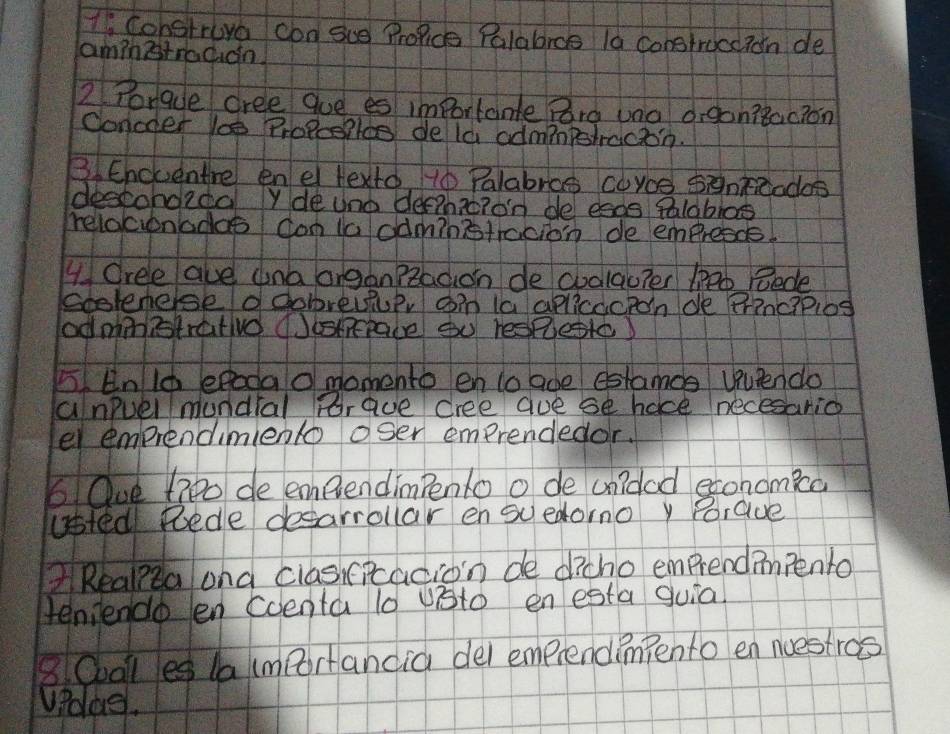 1. Construya con sus Propias Palabras la construcción de
aministración.
2. Porque cree que es importante Para una organización
Conocer los Principios de la administración.
3. Encuentre en el texto 10 Palabras cuyos significados
desconozca y de una definición de esas Palabras
relacionadas con la administración de empresas.
4. Cree que una organización de cualquier tipo Puede
Sostenerse o sobrevivir sin la aplicación de Principios
administrativo (Justifique su respuesta)
5. En la epoca o momento en lo que estamos viviendo
a nivel mundial Por que cree que se hace necesario
el emprendimiento o ser emprendedor.
6. Que tipo de emprendimiento o de unidad economica
usted Puede desarrollar en su entorno y Porque
7. Realiza una clasificación de dicho emprendimiento
teniendo en cuenta lo visto en esta guia.
8. Cual es la importancia del emprendimiento en nuestras
vidas.